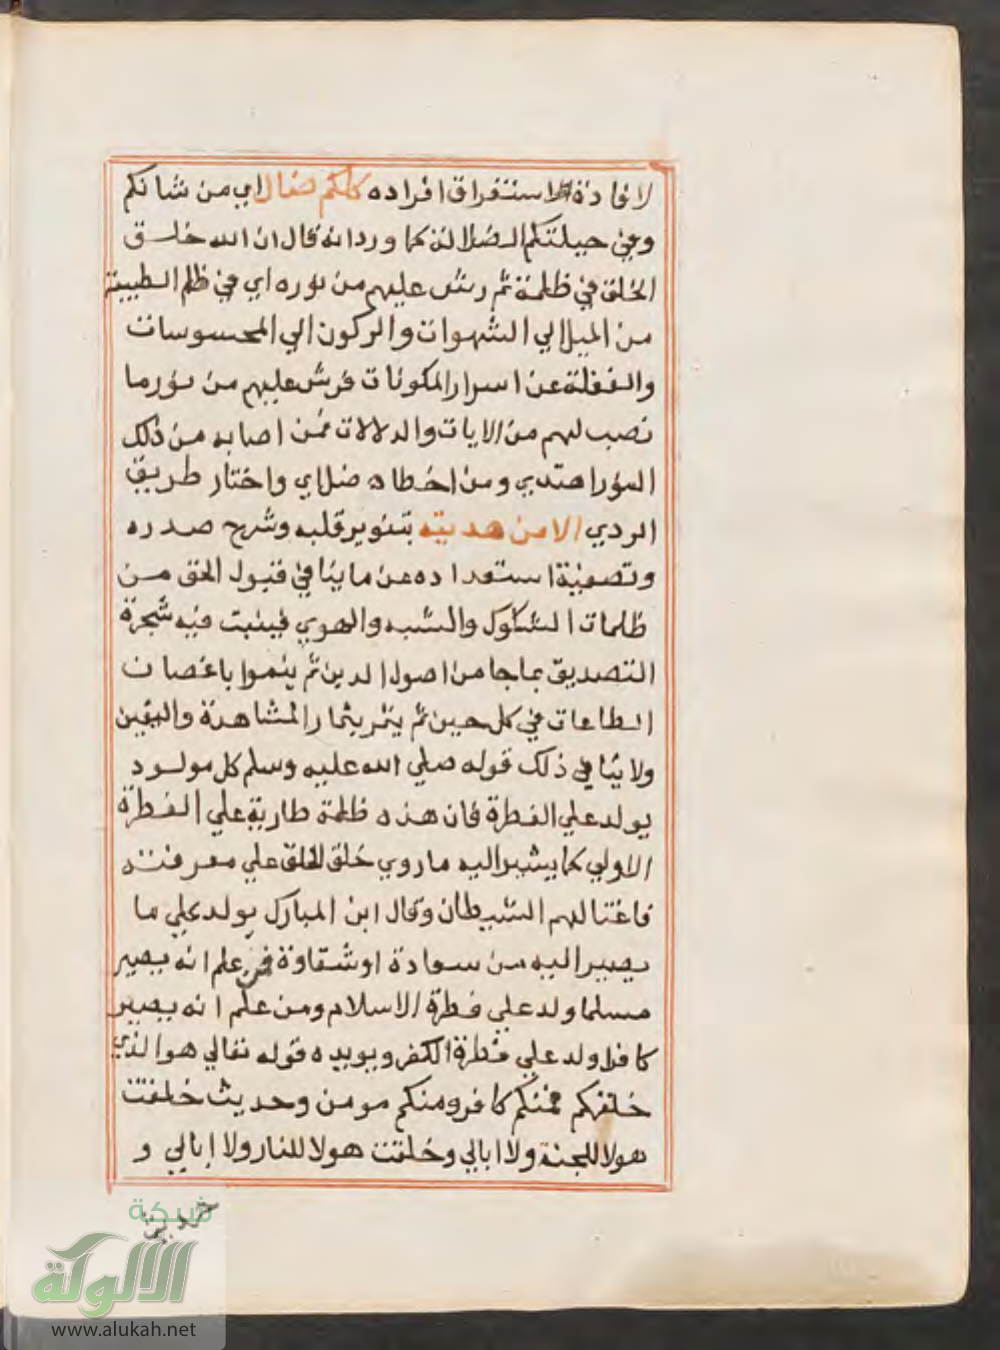 لافادة الاستغراق افراده كلكم ضال اي من شانكم
وفي جبلتكم الضلالة كما ورد انه قال ان الله خلق
الخلق في ظلمة ثم رش عليهم من نوره اي في ظلم الطبيعة
من الميل الي الشهوات والركون الي المحسوسات
والغفلة عن اسرار المكونات فرش عليهم من نور ما
نصب لهم من الايات والدلالات فمن اصابه من ذلك
النور اهتدي ومن اخطاه ضل اي واختار طريق
الردي الا من هديته بتنوير قلبه وشرح صدره
وتصفية استعداده عن ما ينافي قبول الحق من
ظلمات الشكوك والشبه والهوي فينبت فيه شجرة
التصديق بما جا من اصول الدين ثم ينموا باغصان
الطاعات في كل حين ثم يثمر بثمار المشاهدة واليقين
ولا ينافي ذلك قوله صلي الله عليه وسلم كل مولود
يولد علي الفطرة فان هذه ظلمة طارية علي الفطرة
الاولي كما يشير اليه ما روي خلق الخلق علي معرفته
فاغتالهم الشيطان وقال ابن المبارك يولد علي ما
يصير اليه من سعادة او شقاوة فمن علم انه يصير
مسلما ولد علي فطرة الاسلام ومن علم انه يصير
كافرا ولد علي فطرة الكفر ويويده قوله تعالي هو الذي
خلقكم فمنكم كافر ومنكم مومن وحديث خلقت
هولا للجنة ولا ابالي وخلقت هولا للنار ولا ابالي و
شبكة
الألوكة
www.alukah.net